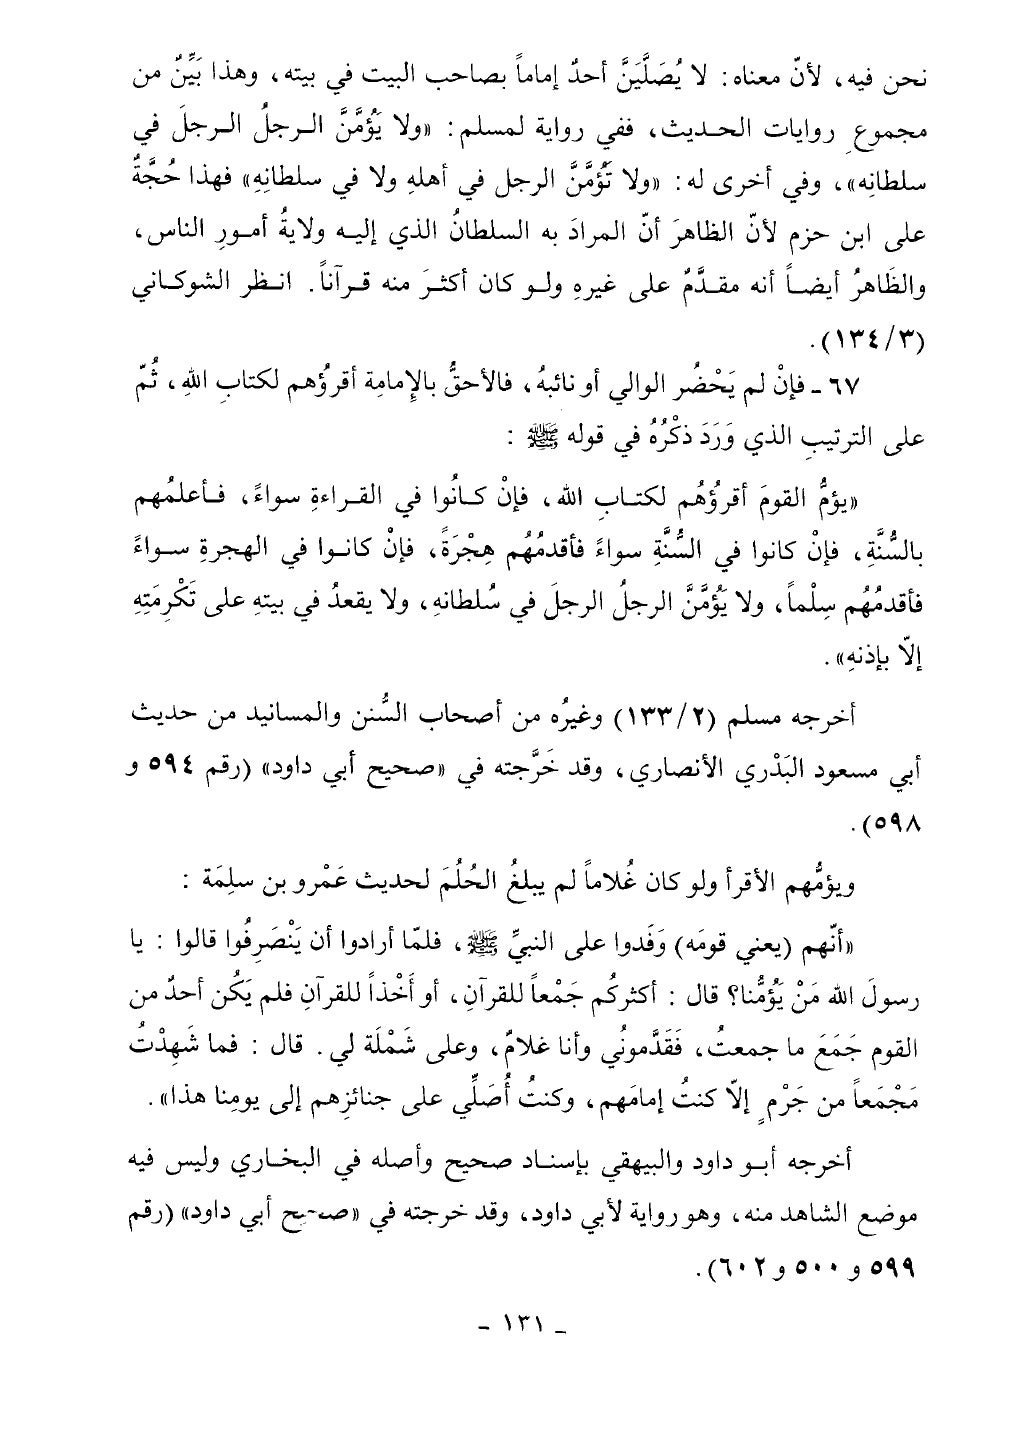 نحن فيه، لأنّ معناه: لا يُصَلَّيَنَّ أحدٌ إماماً بصاحب البيت في بيته، وهذا بَيِّنٌ من
مجموعِ روايات الحـديث، ففي رواية لمسلم: «ولا يَؤُمَّنَّ الـرجلُ الـرجلَ في
سلطانِه»، وفي أخرى له: «ولا تَؤُمَّنَّ الرجل في أهلهِ ولا في سلطانِهِ» فهذا حُجَّةٌ
على ابن حزم لأنّ الظاهرَ أنّ المرادَ به السلطانُ الذي إليـه ولايةُ أمـورِ الناس،
والظَاهرُ أيضـاً أنه مقـدَّمٌ على غيرهِ ولـو كان أكثـرَ منه قـرآناً. انـظر الشوكـاني
(٣/ ١٣٤).
٦٧ ـ فإنْ لم يَحْضُر الوالي أو نائبهُ، فالأحقُّ بالإِمامِة أقرؤُهم لكتابِ اللهِ، ثُمّ
على الترتيبِ الذي وَرَدَ ذكْرُهُ في قوله ﷺ :
«يؤمُّ القومَ أقرؤُهُم لكتـابِ الله، فإنْ كـانُوا في القـراءةِ سواءً، فـأعلمُهم
بالسُّنَّةِ، فإنْ كانوا في السُّنَّةِ سواءً فأقدمُهُم هِجْرَةً، فإنْ كانـوا في الهجرةِ سـواءً
فأقدمُهُم سِلْماً، ولا يَؤُمَّنَّ الرجلُ الرجلَ في سُلطانهِ، ولا يقعدُ في بيتهِ على تَكْرِمَتِهِ
إلّا بإذنهِ».
أخرجه مسلم (٢/ ١٣٣) وغيرُه من أصحاب السُّنن والمسانيد من حديث
أبي مسعود البَدْري الأنصاري، وقد خَرَّجته في «صحيح أبي داود» (رقم ٥٩٤ و
٥٩٨).
ويؤمُّهم الأقرأ ولو كان غُلاماً لم يبلغُ الحُلُمَ لحديث عَمْرو بن سلِمَة :
«أنّهم (يعني قومَه) وَفَدوا على النبيِّ ﷺ، فلمّا أرادوا أن يَنْصَرِفُوا قالوا : يا
رسولَ الله مَنْ يَؤُمُّنا؟ قال : أكثركُم جَمْعاً للقرآنِ، أو أَخْذاً للقرآنِ فلم يَكُن أحدٌ من
القوم جَمَعَ ما جمعتُ، فَقَدَّموني وأنا غلامٌ، وعلى شَمْلَة لي. قال : فما شَهِدْتُ
مَجْمَعاً من جَرْمٍ إلّا كنتُ إمامَهم، وكنتُ أُصَلِّي على جنائزِهم إلى يومِنا هذا».
أخرجه أبـو داود والبيهقي بإسنـاد صحيح وأصله في البخـاري وليس فيه
موضع الشاهد منه، وهو رواية لأبي داود، وقد خرجته في «صحيح أبي داود» (رقم
٥٩٩ و ٥٠٠ و ٦٠٢).
ـ ١٣١ ـ